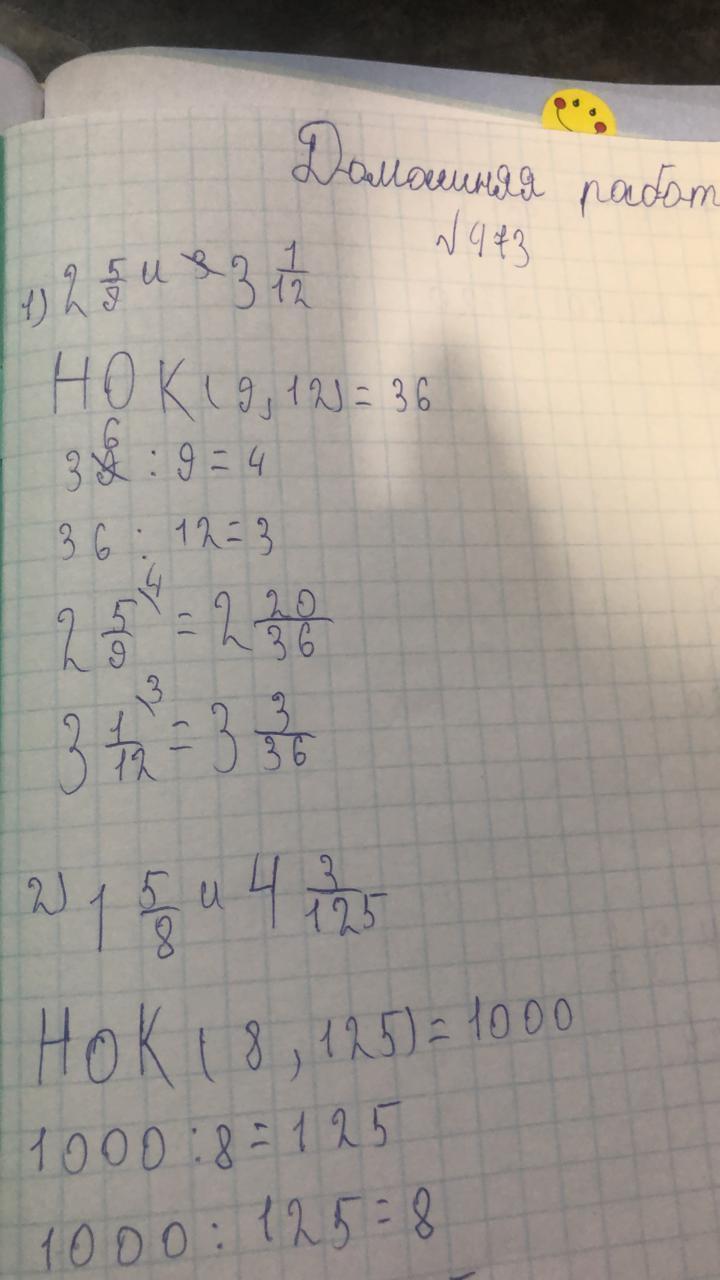 Домашняя работ
№ 973
1) 2 5/9 и 3 1/12
НОК (9, 12) = 36
36 : 9 = 4
36 : 12 = 3
2 5/9 \4 = 2 20/36
3 1/12 \3 = 3 3/36
2) 1 5/8 и 4 3/125
НОК (8, 125) = 1000
1000 : 8 = 125
1000 : 125 = 8